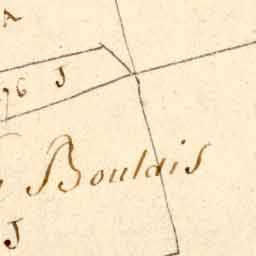 A
76 J
Boulais
J